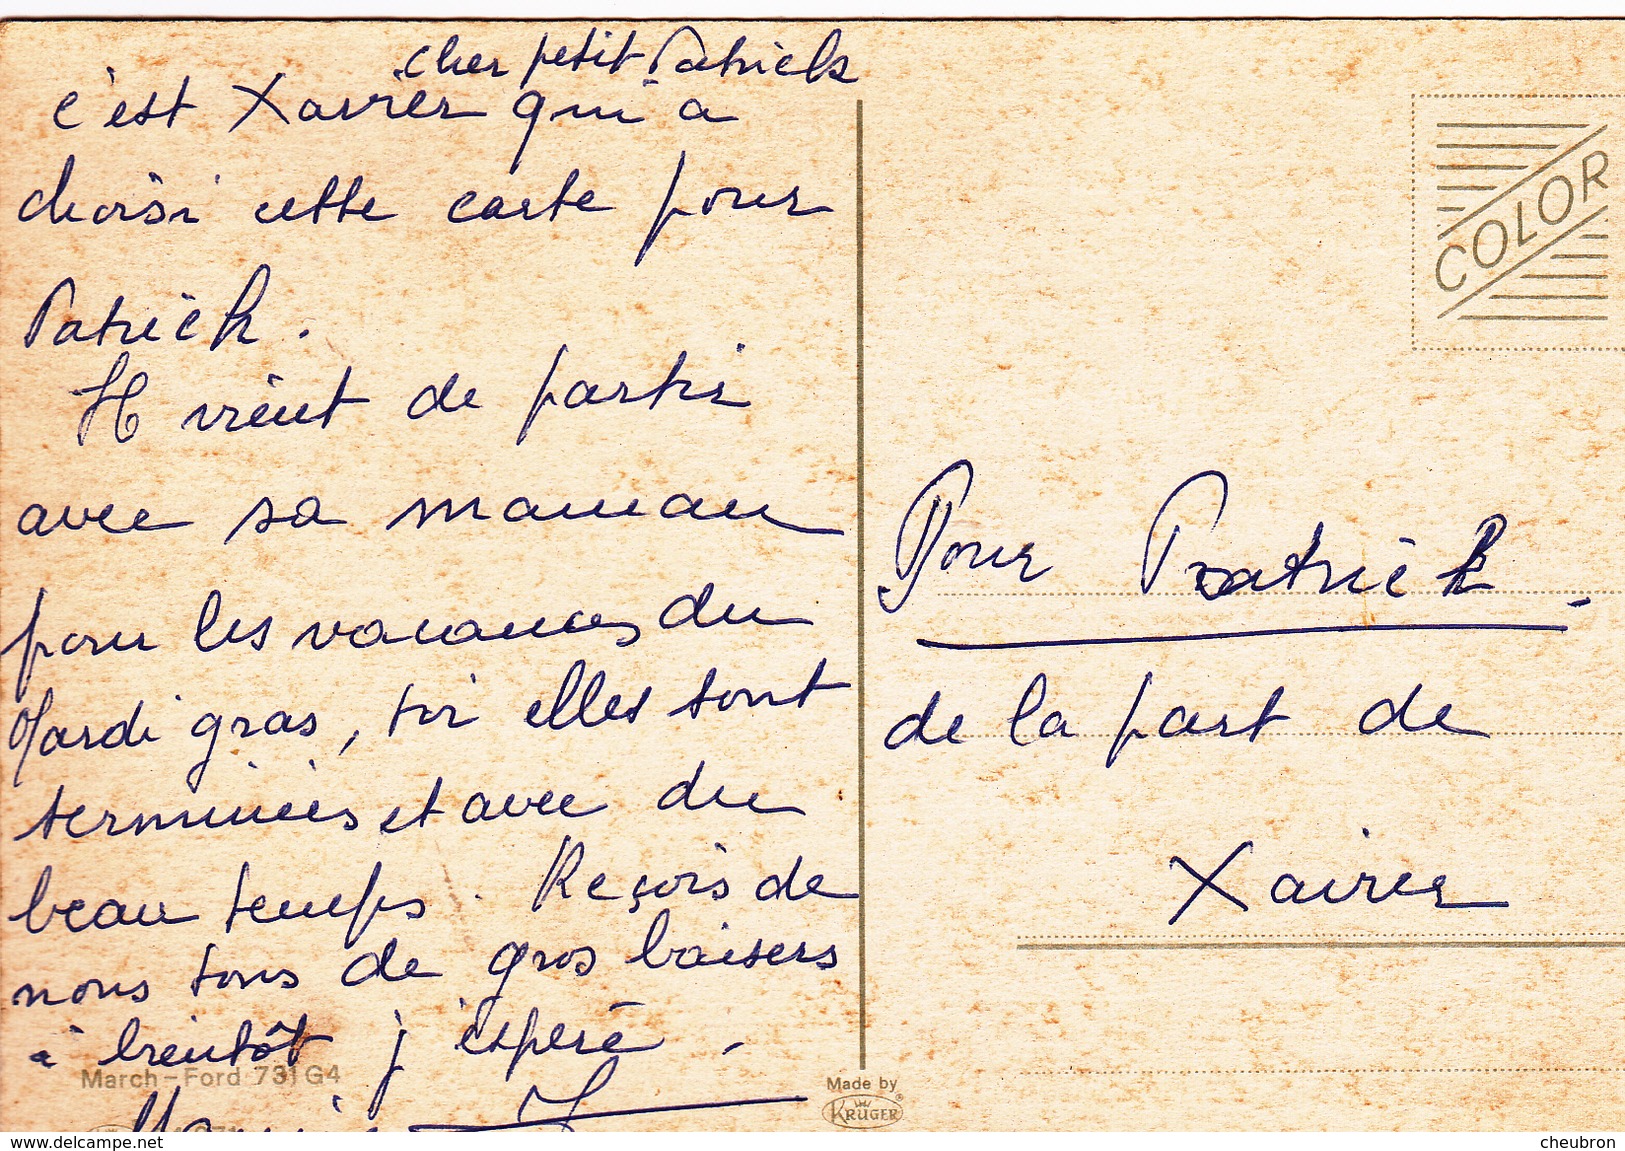 cher petit Patrick
c'est Xavier qui a
choisi cette carte pour
Patrick.
Il vient de partir
avec sa maman
pour les vacances du
Mardi gras, toi elles sont
terminées et avec du
beau temps. Reçois de
nous tous de gros baisers
à bientôt j'espère.
March-Ford 731 G4
Made by
KRÜGER
COLOR
Pour Patrick.
de la part de
Xavier
www.delcampe.net
cheubron